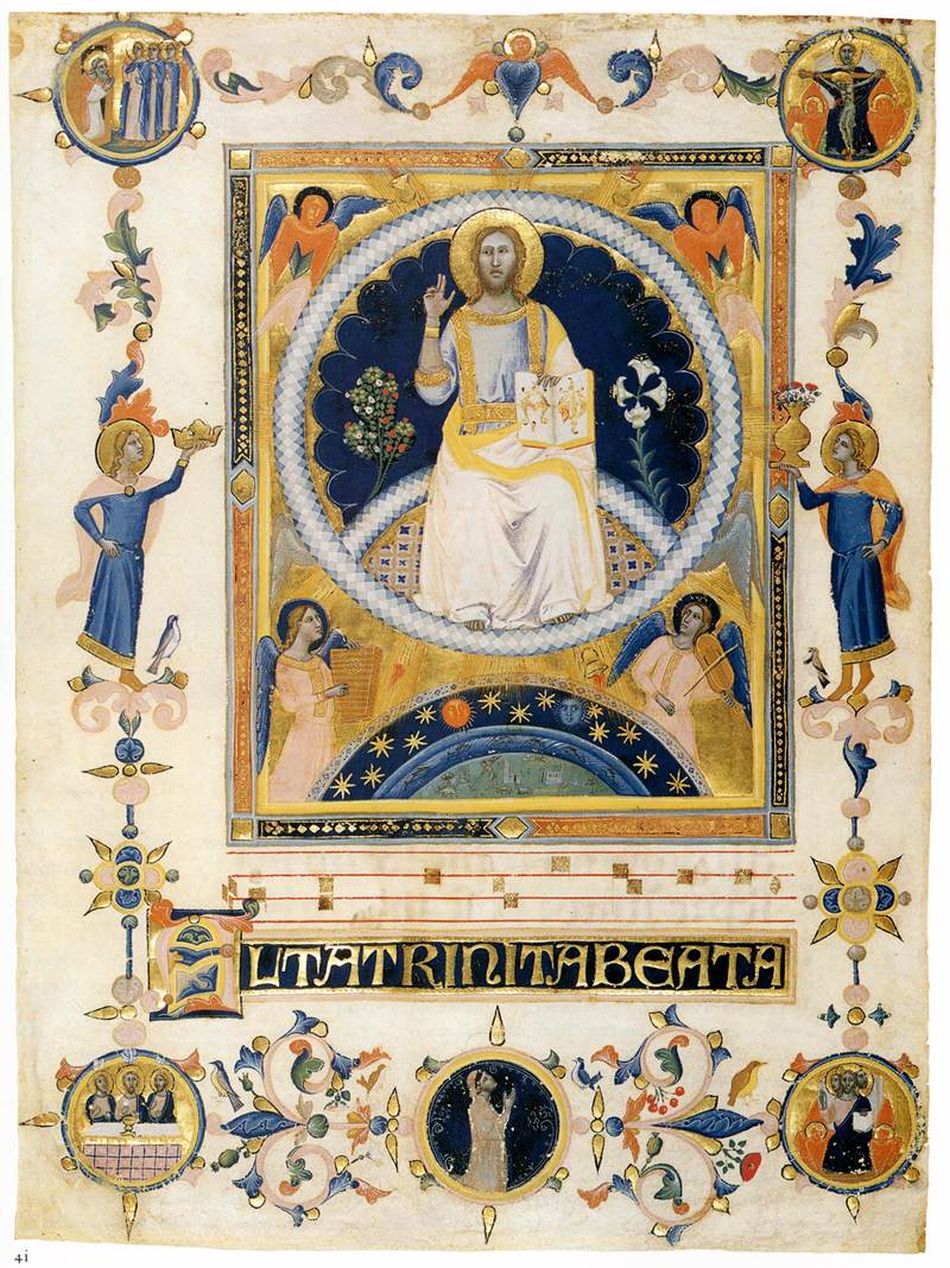 ALTATRINITABEATA
4i